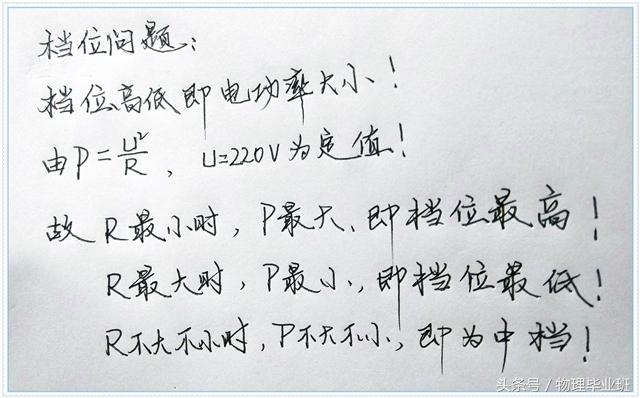 档位问题:
档位高低即电功率大小!
由P=U²/R, U=220V为定值!
故R最小时,P最大、即档位最高!
R最大时,P最小,即档位最低!
R不大不小时,P不大不小,即为中档!
头条号/物理毕业班